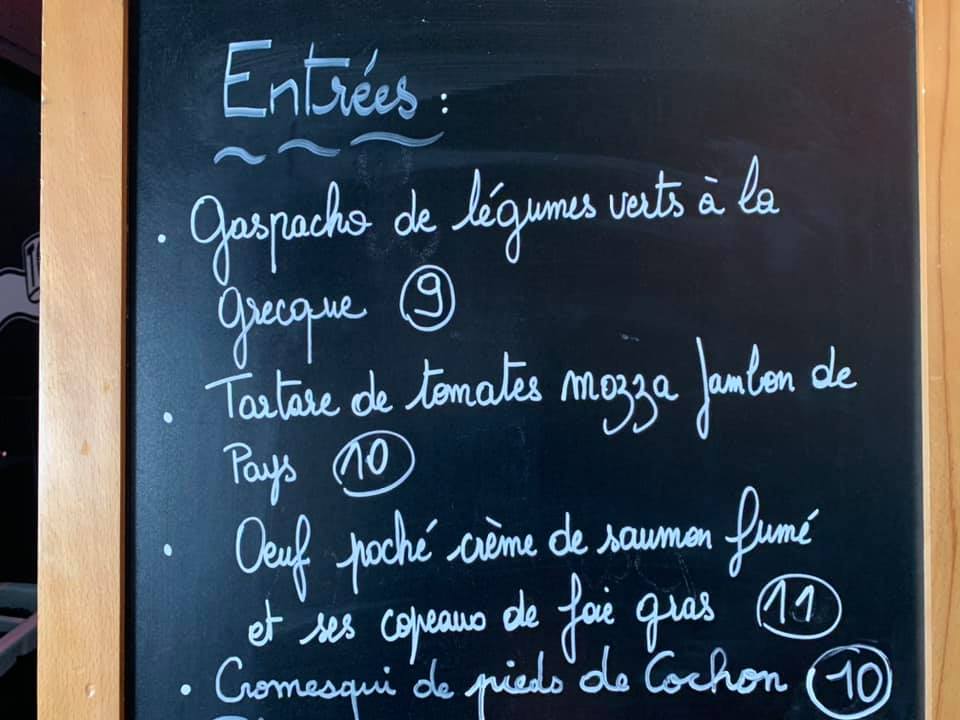 Entrées :
• Gaspacho de légumes verts à la
grecque 9
• Tartare de tomates mozza Jambon de
Pays 10
• Oeuf poché crème de saumon fumé
et ses copeaux de foie gras 11
• Cromesqui de pieds de Cochon 10